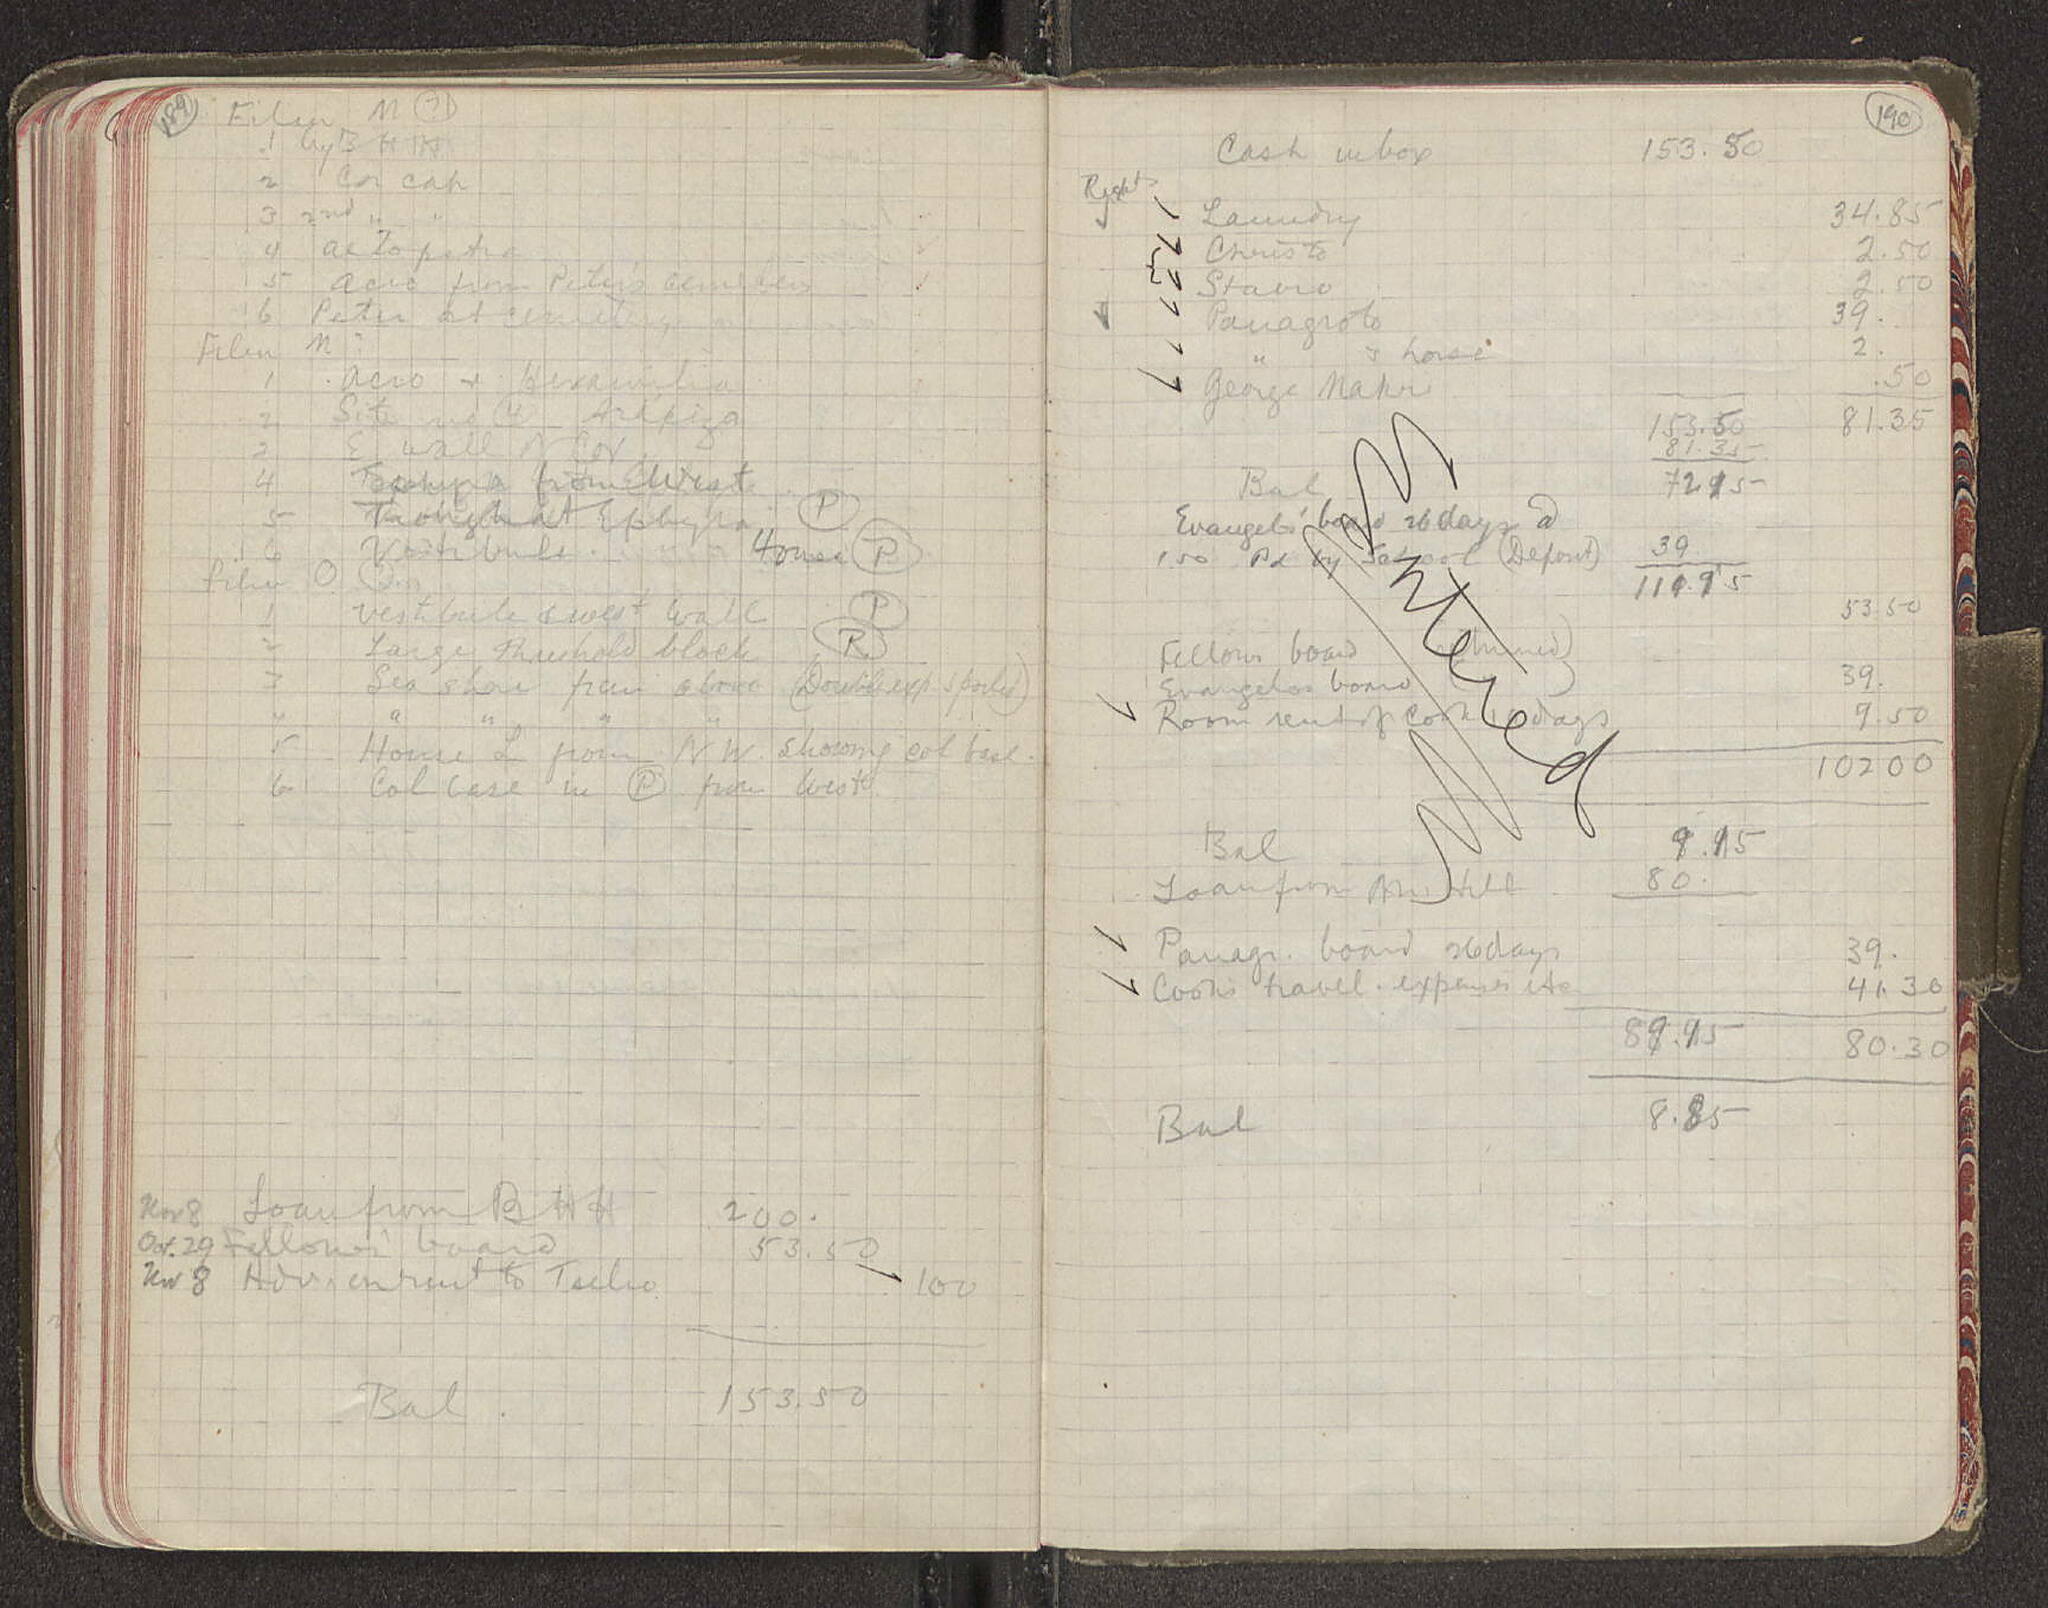 189
Film M
1 by B H H
2 Cor cap
3 2nd " "
4 Aetopetra
5 Acro from Pete's cemetery
6 Peter at cemetery
Film N
1 Acro + Hexamilia
2 Site and Arapiza
3 E wall N Cor
4 from West
5 Trough at Ephyra (P)
6 Vestibule House (P)
Film O
1 Vestibule & west wall (P)
2 Large threshold block (R)
3 Sea shore from above (Double exp. spoiled)
" " " " "
5 House L from N W. showing col base.
6 Col base in (P) from West
Nov 8 Loan from B H H 200.
Oct. 29 Fellows' board 53.50
Nov 8 Adv. on rent to 100
Bal. 153.50
190
Cash in box 153.50
Right
Laundry 34.85
Christo 2.50
Stavro 2.50
Panagroto 39.
" & horse 2.
George .50
153.50 81.35
81.35
Bal 72.15
Evangelos' board 26 days @
1.50 Pd by School (Deposit) 39
111.15
53.50
Fellows board
Evangelos board 39.
Room rent of Cook days 9.50
102 00
Entered
Bal 9.15
Loan from Mr Hill 80.
Panagr. board 26 days 39.
Cook's travel. expenses etc 41.30
89.15 80.30
Bal 8.85